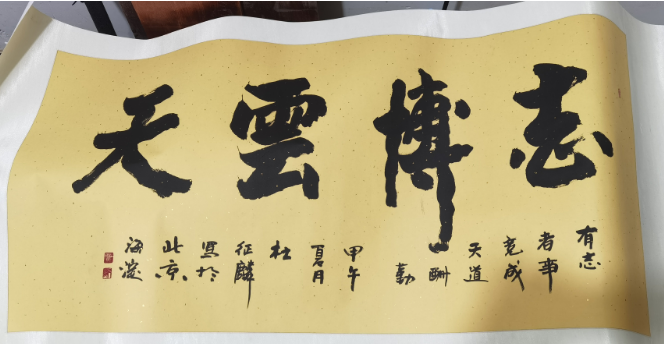 志博雲天
有志
者事
竟成
天道
酬
勤
甲午
夏月
杜
征麟
寫於
北京
海淀